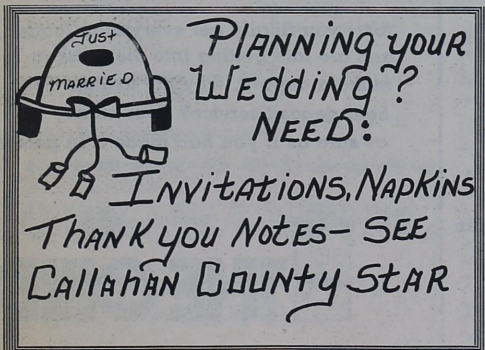 Just
MARRIED
PlANNiNg youR
WEddiNg?
NEEd:
INvitatioNs, NapkiNs
ThaNk you Notes- SEE
CallahaN CouNty StaR